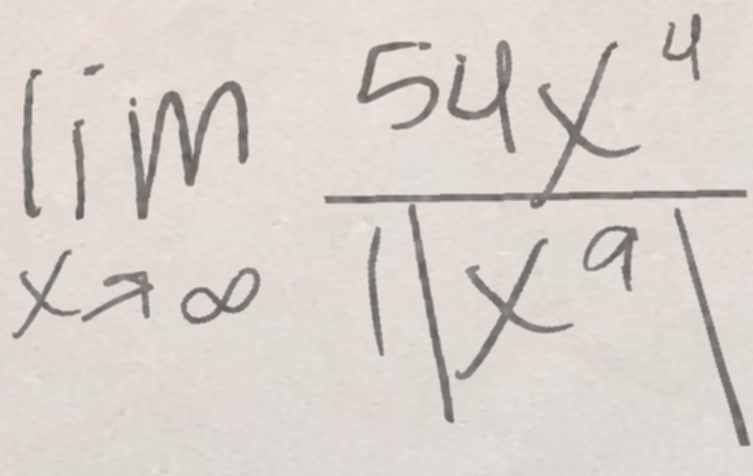 lim 54x⁴
x→∞ 1|x⁹|